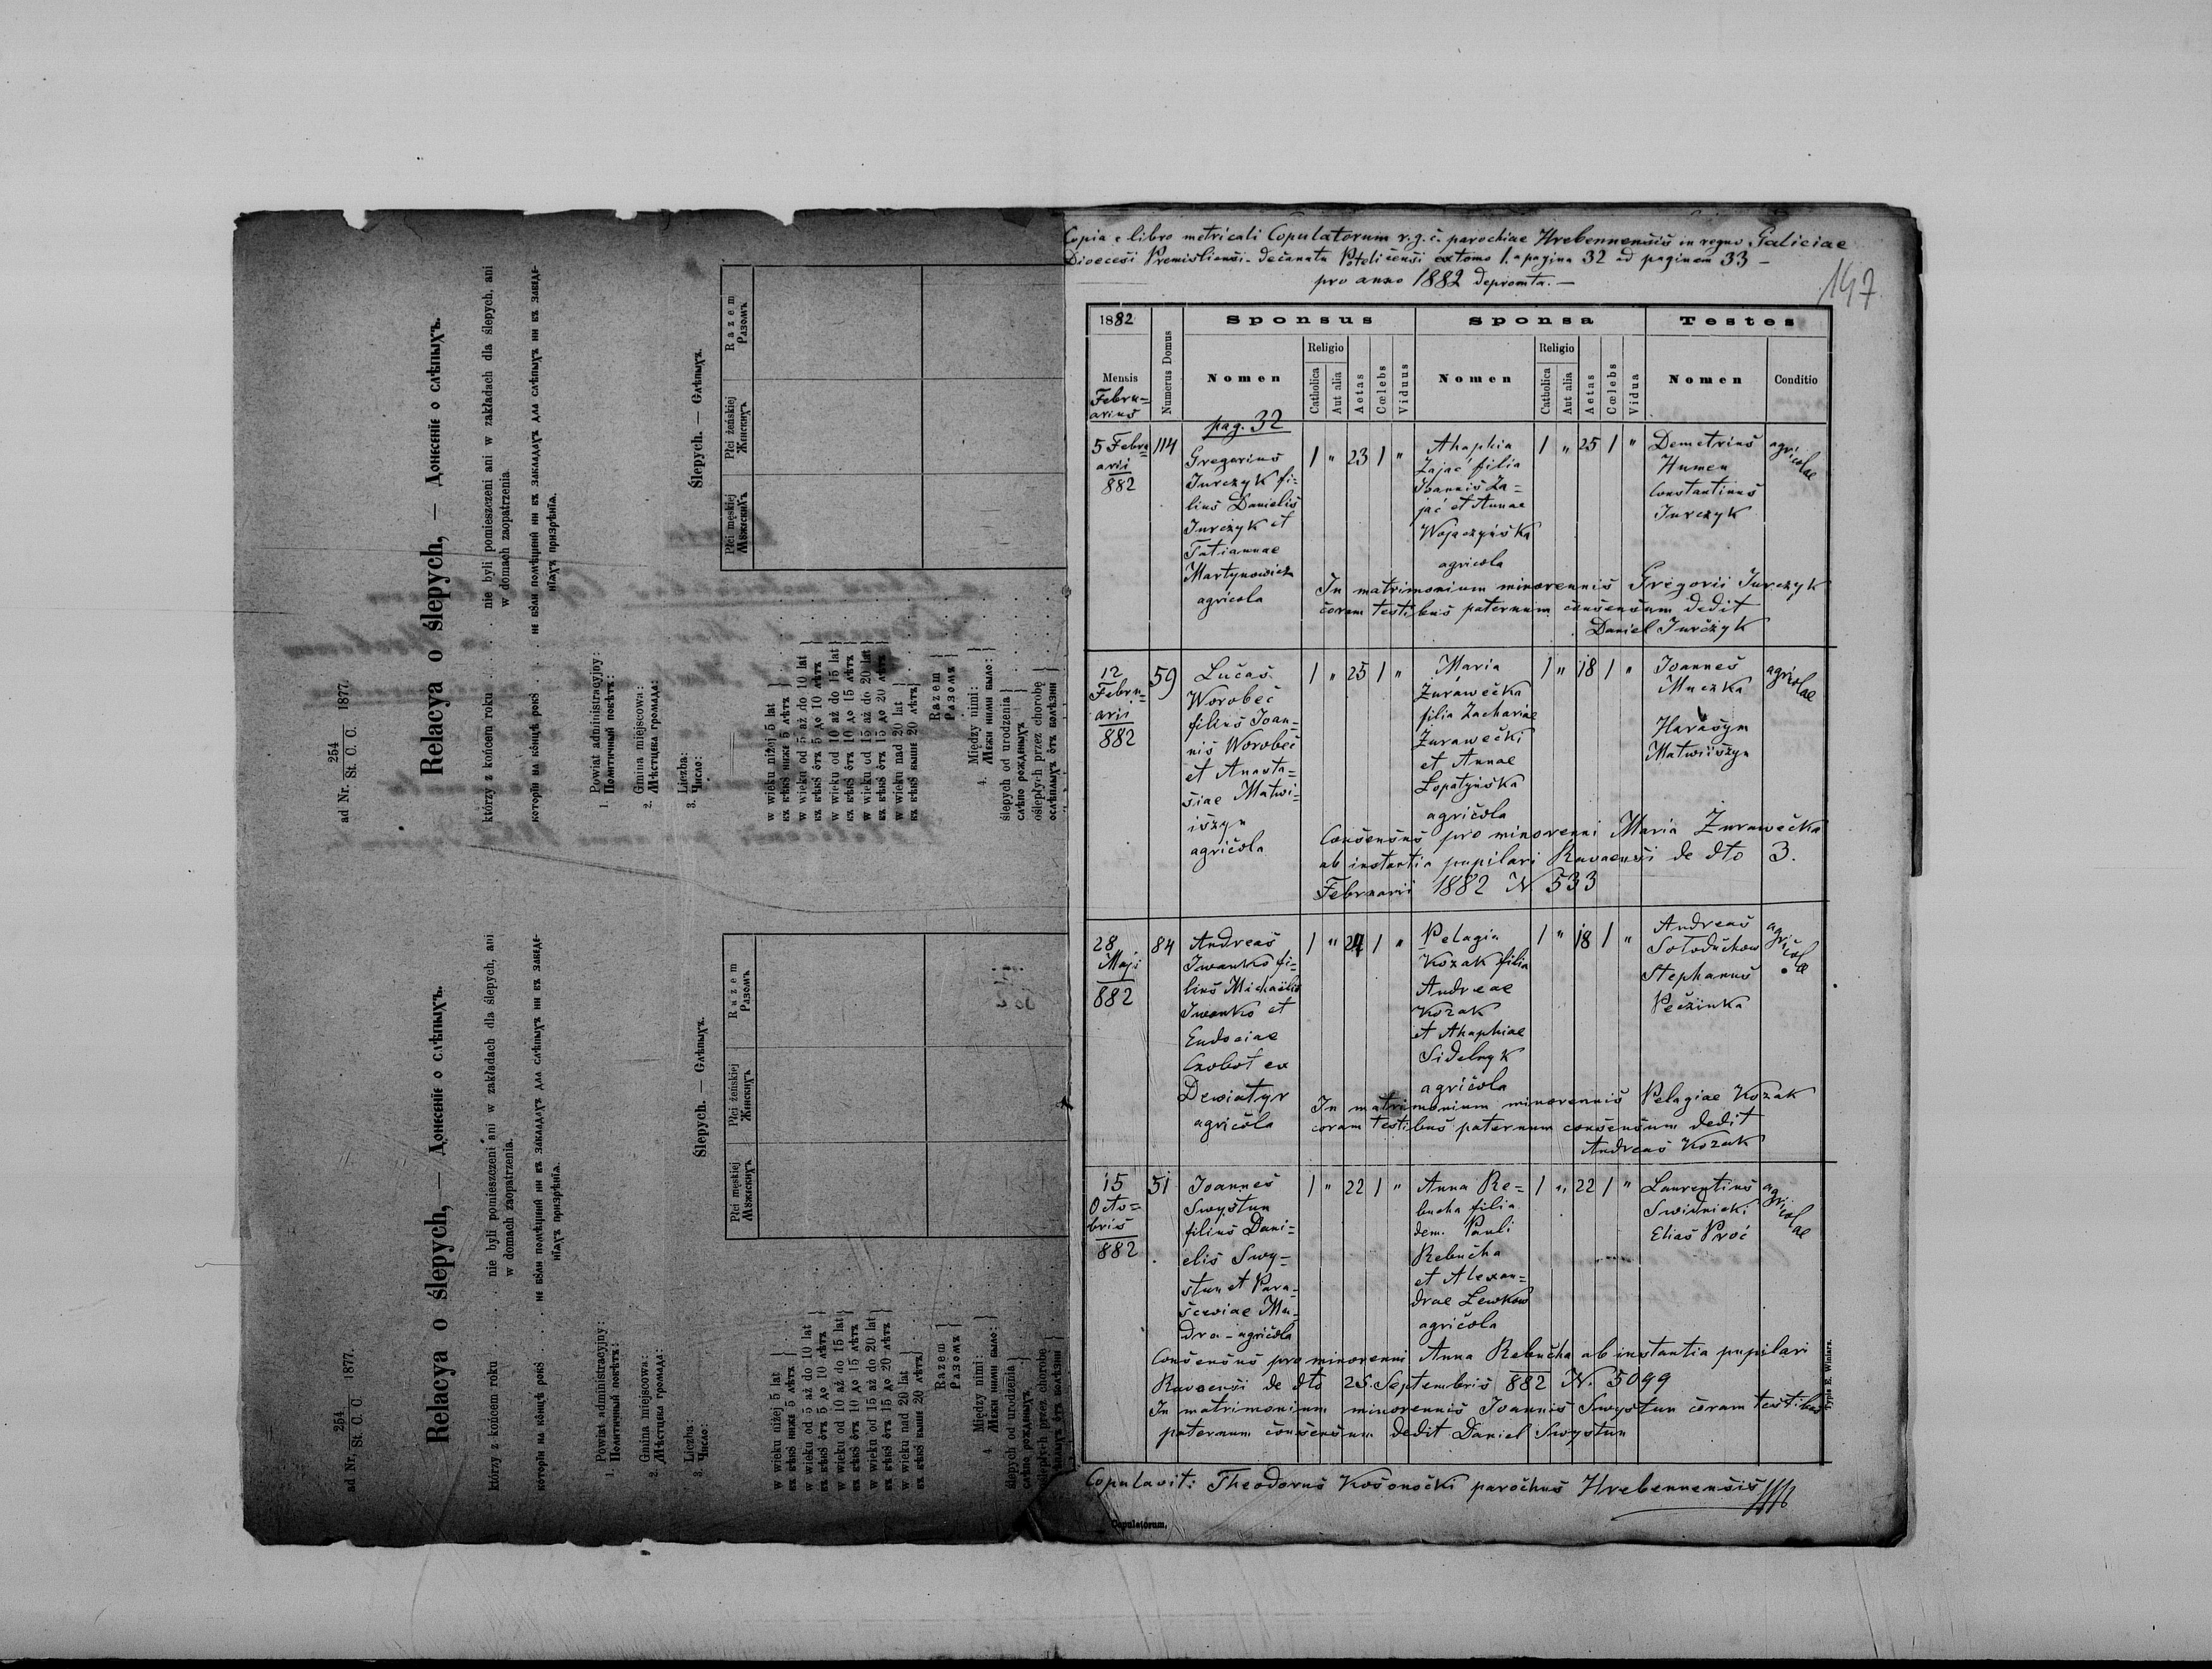 ad Nr. 254 / St. C. C. 1877.
Relacya o ślepych, — Донесенїе о слѣпыхъ.
którzy z końcem roku . . . . nie byli pomieszczeni ani w zakładach dla ślepych, ani
w domach zaopatrzenia.
которіи на конци рокꙋ . . . . не были помѣщени ни въ закладахъ для слѣпыхъ ни въ заведе-
нїахъ призрѣнїа.
1. Powiat administracyjny:
Политичный повѣтъ:
2. Gmina miejscowa:
Мѣстцева громада:
3. Liczba:
Число:
Ślepych. — Слѣпыхъ.
Płci męskiej
Мꙋжескихъ
Płci żeńskiej
Женскихъ
Razem
Разомъ
w wieku niżej 5 lat
въ вѣкꙋ ниже 5 лѣтъ
w wieku od 5 aż do 10 lat
въ вѣкꙋ ѻтъ 5 до 10 лѣтъ
w wieku od 10 aż do 15 lat
въ вѣкꙋ ѻтъ 10 до 15 лѣтъ
w wieku od 15 aż do 20 lat
въ вѣкꙋ ѻтъ 15 до 20 лѣтъ
w wieku nad 20 lat
въ вѣкꙋ выше 20 лѣтъ
Razem
Разомъ
4. Między nimi:
Межи ними было:
ślepych od urodzenia
слѣпо рожденыхъ
oślepłych przez chorobę
ослѣплыхъ ѻтъ болѣзни
ad Nr. 254 / St. C. C. 1877.
Relacya o ślepych, — Донесенїе о слѣпыхъ.
którzy z końcem roku . . . . nie byli pomieszczeni ani w zakładach dla ślepych, ani
w domach zaopatrzenia.
которіи на конци рокꙋ . . . . не были помѣщени ни въ закладахъ для слѣпыхъ ни въ заведе-
нїахъ призрѣнїа.
1. Powiat administracyjny:
Политичный повѣтъ:
2. Gmina miejscowa:
Мѣстцева громада:
3. Liczba:
Число:
Ślepych. — Слѣпыхъ.
Płci męskiej
Мꙋжескихъ
Płci żeńskiej
Женскихъ
Razem
Разомъ
w wieku niżej 5 lat
въ вѣкꙋ ниже 5 лѣтъ
w wieku od 5 aż do 10 lat
въ вѣкꙋ ѻтъ 5 до 10 лѣтъ
w wieku od 10 aż do 15 lat
въ вѣкꙋ ѻтъ 10 до 15 лѣтъ
w wieku od 15 aż do 20 lat
въ вѣкꙋ ѻтъ 15 до 20 лѣтъ
w wieku nad 20 lat
въ вѣкꙋ выше 20 лѣтъ
Razem
Разомъ
4. Między nimi:
Межи ними было:
ślepych od urodzenia
слѣпо рожденыхъ
oślepłych przez chorobę
ослѣплыхъ ѻтъ болѣзни
Copia e libro metricali Copulatorum r. g. c. parochiae Hrebennensis in regno Galiciae
Dioecesi Premisliensi. decanatu Potelicensi ex tomo 1. a pagina 32 ad paginam 33 —
pro anno 1882 depromta. —
147
1882
Mensis
Febru=
arius
Numerus Domus
Sponsus
Sponsa
Testes
Nomen
Religio
Catholica
Aut alia
Aetas
Cœlebs
Viduus
Nomen
Religio
Catholica
Aut alia
Aetas
Cœlebs
Vidua
Nomen
Conditio
pag. 32
5 Febru=
arii
882
114
Gregorius
Jurczyk fi-
lius Danielis
Jurczyk et
Tatiannae
Martynowicz
agricola
1 " 23 1 "
Ahaphia
Zajać filia
Joannis Za=
jać et Annae
Wojaczyńska
agricola
1 " 25 1 "
Demetrius
Humen
Constantinus
Jurczyk
agricolae
In matrimonium minorennis Gregorii Jurczyk
coram testibus paternum consensum dedit
Daniel Jurczyk
12
Febru=
arii
882
59
Lucas
Worobec
filius Joan-
nis Worobec
et Anasta-
siae Matwi-
iszyn
agricola
1 " 25 1 "
Maria
Żurawecka
filia Zachariae
Żurawecki
et Annae
Łopatyńska
agricola
1 " 18 1 "
Joannes
Muczka
Harasym
Matwiiszyn
agricolae
Consensus pro minorenni Maria Żurawecka
ab instantia pupilari Ravaensi de dto 3.
Februarii 1882 N 533
28
Maji
882
84
Andreas
Iwanko fi-
lius Michaelis
Iwanko et
Eudociae
Czobot ex
Dewiatyr
agricola
1 " 24 1 "
Pelagia
Kozak filia
Andreae
Kozak
et Ahaphiae
Sidelnyk
agricola
1 " 18 1 "
Andreas
Sołoduchow
Stephanus
Peczinka
agricolae
In matrimonium minorennis Pelagiae Kozak
coram testibus paternum consensum dedit
Andreas Kozak
15
Octo=
bris
882
51
Joannes
Swystun
filius Dani-
elis Swy-
stun et Para-
scewiae Mu-
dra - agricola
1 " 22 1 "
Anna Re-
bucha filia
dem. Pauli
Rebucha
et Alexan-
drae Lewkow
agricola
1 " 22 1 "
Laurentius
Swidnicki
Elias Proć
agricolae
Consensus pro minorenni Anna Rebucha ab instantia pupilari
Ravaensi de dto 25. Septembris 882 N. 5099
In matrimonium minorennis Joannis Swystun coram testibus
paternum consensum dedit Daniel Swystun
Copulavit: Theodorus Kosonocki parochus Hrebennensis
Copulatorum.
Typis E. Winiarz.